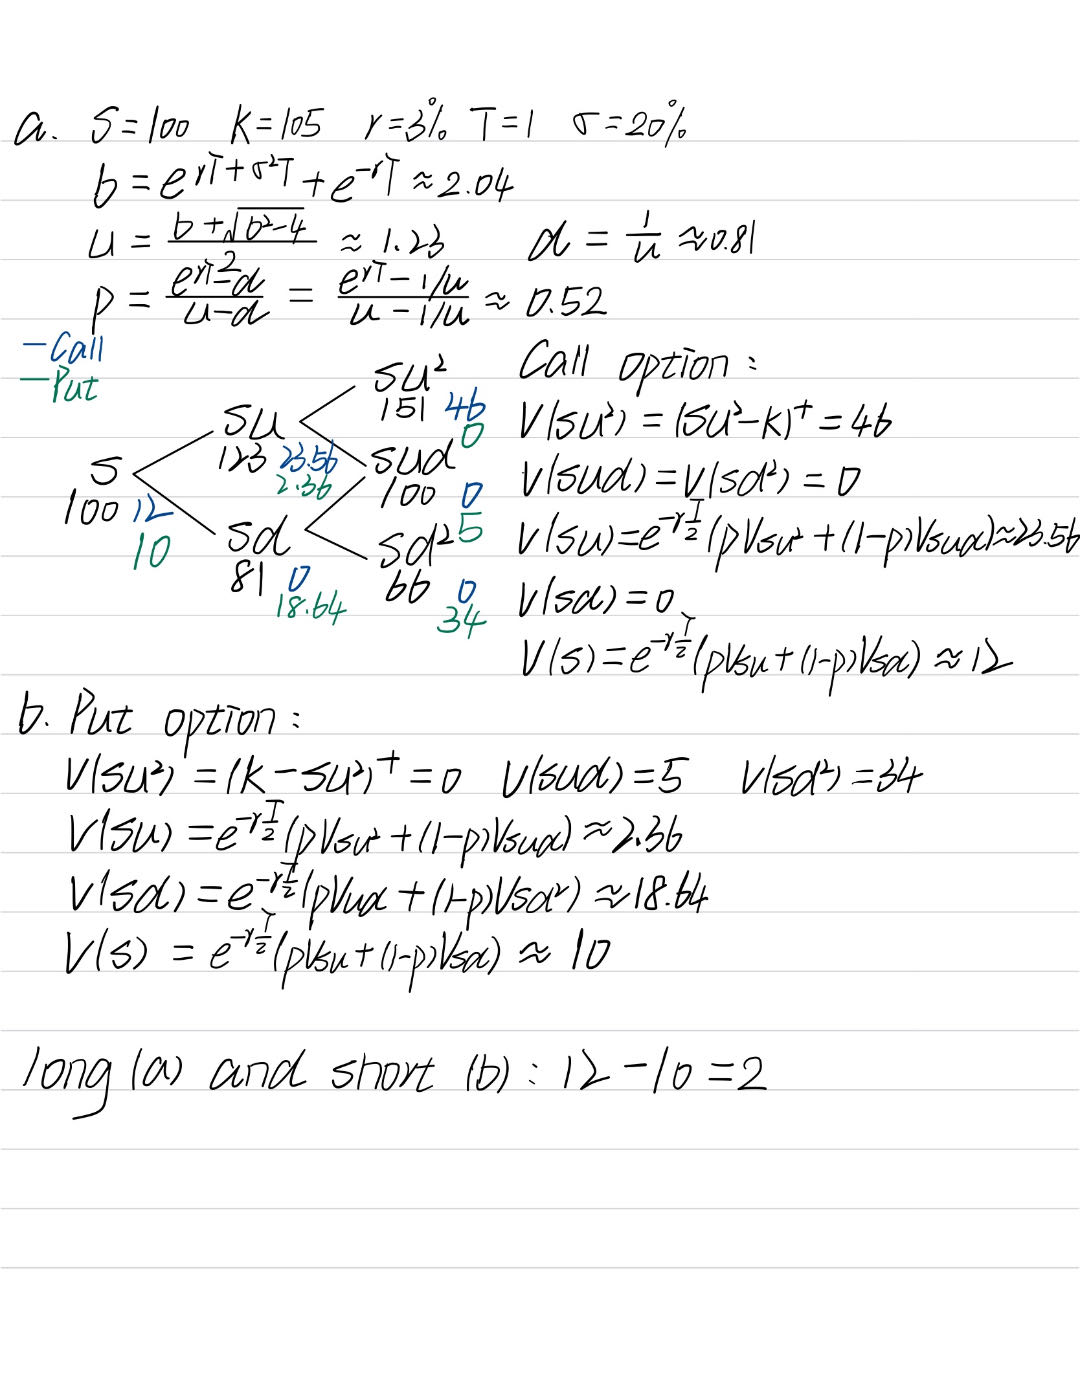 a. S=100 K=105 r=3% T=1 σ=20%
b = e^{rT+σ²T} + e^{-rT} ≈ 2.04
u = (b+√(b²-4))/2 ≈ 1.23 d = 1/u ≈ 0.81
p = (e^{rT}-d)/(u-d) = (e^{rT}-1/u)/(u-1/u) ≈ 0.52
-Call
-Put
Su²
151 46
0
Su
123 23.56
2.36
Sud
100 0
5
S
100 12
10
Sd
81 0
18.64
Sd²
66 0
34
Call option:
V(Su²) = (Su²-K)⁺ = 46
V(Sud) = V(Sd²) = 0
V(Su) = e^{-r T/2}(pVsu² + (1-p)Vsud) ≈ 23.56
V(Sd) = 0
V(S) = e^{-r T/2}(pVsu + (1-p)Vsd) ≈ 12
b. Put option:
V(Su²) = (K-Su²)⁺ = 0 V(Sud) = 5 V(Sd²) = 34
V(Su) = e^{-r T/2}(pVsu² + (1-p)Vsud) ≈ 2.36
V(Sd) = e^{-r T/2}(pVud + (1-p)Vsd²) ≈ 18.64
V(S) = e^{-r T/2}(pVsu + (1-p)Vsd) ≈ 10
long (a) and short (b): 12-10=2